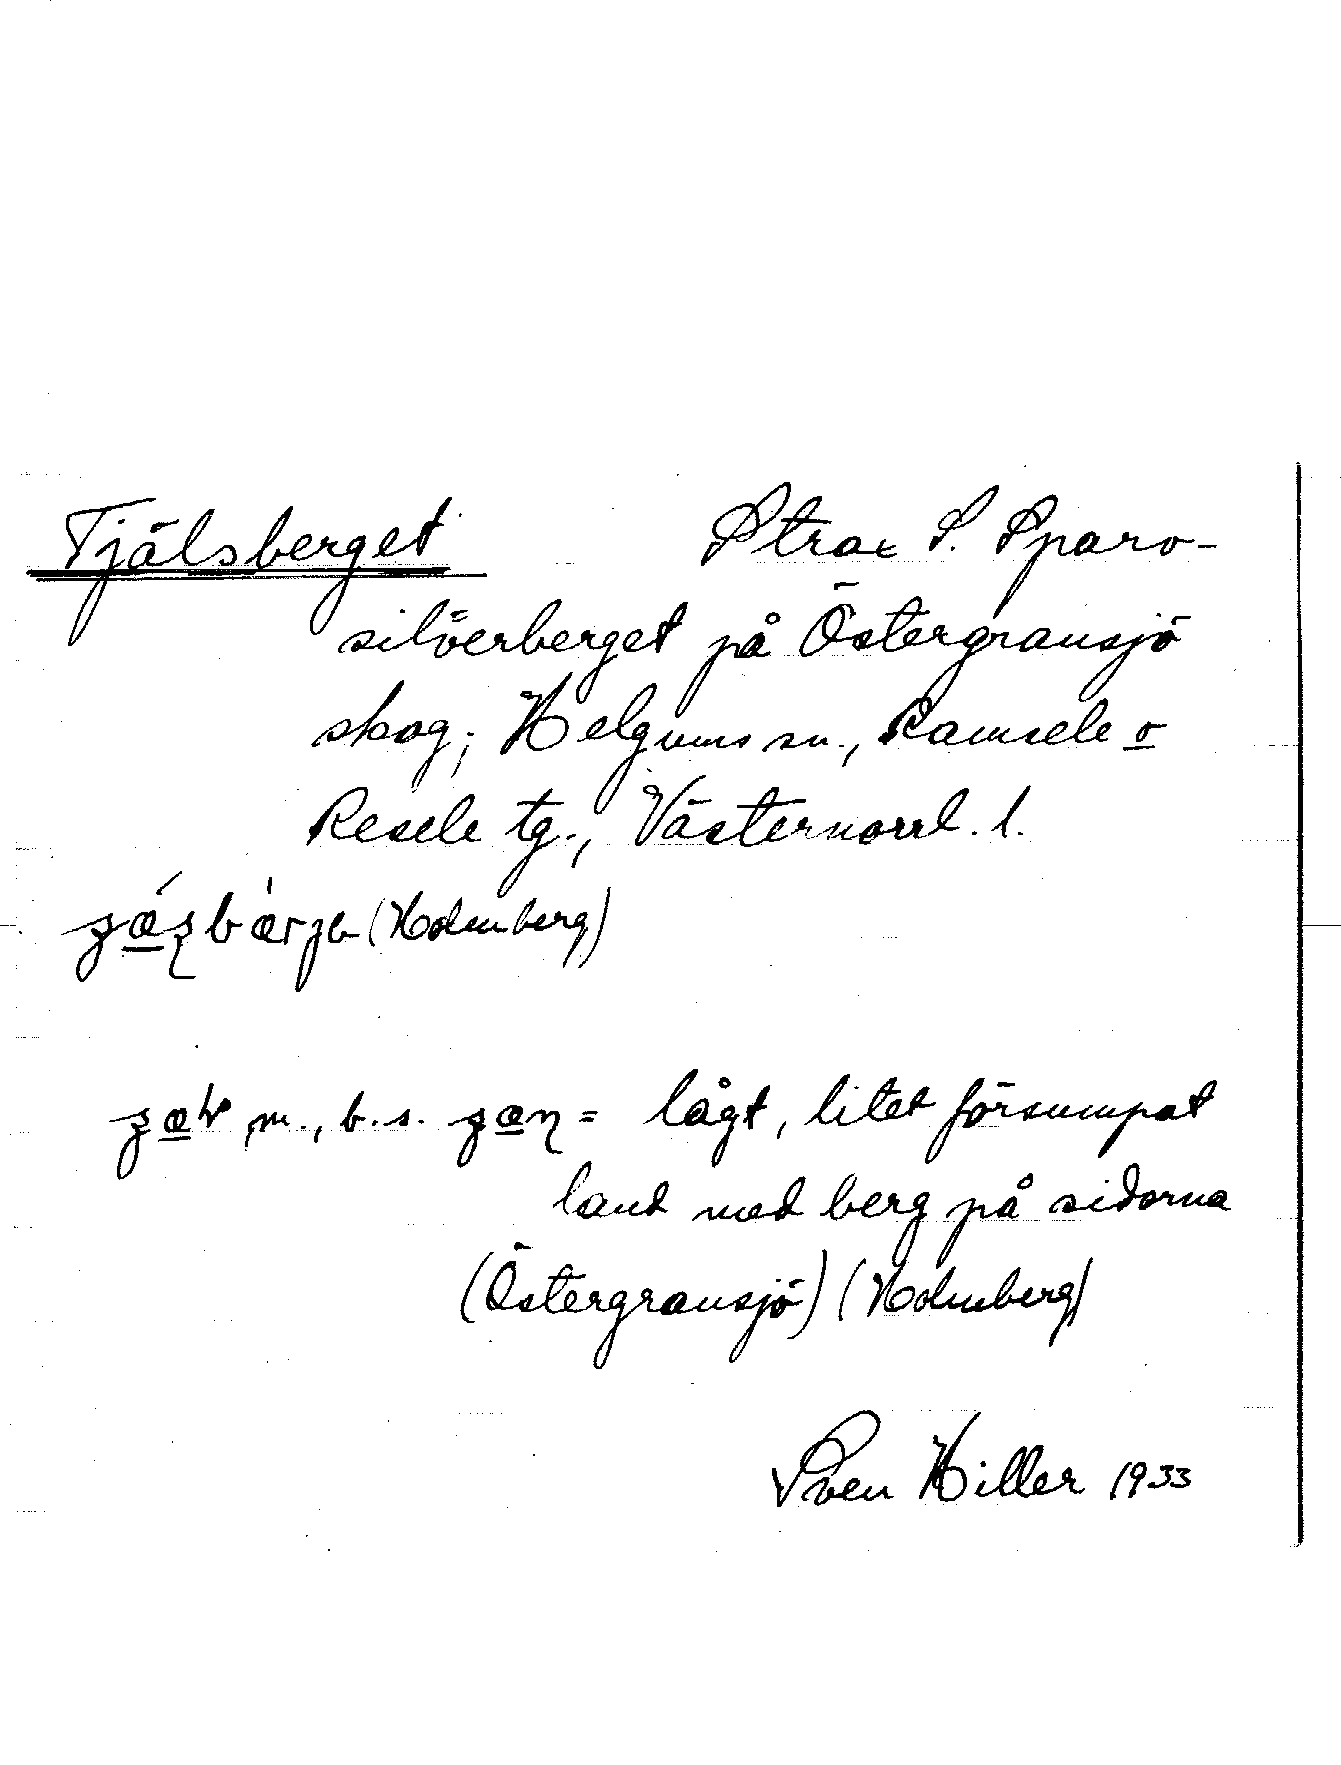 Tjälsberget Strax S. Sparv-
silverberget på Östergransjö
skog; Helgums sn., Ramsele o
Resele tg., Västernorrl. l.
(Holmberg)
m., b. s. = lågt, litet försumpat
land med berg på sidorna
(Östergransjö) (Holmberg)
Sven Hiller 1933